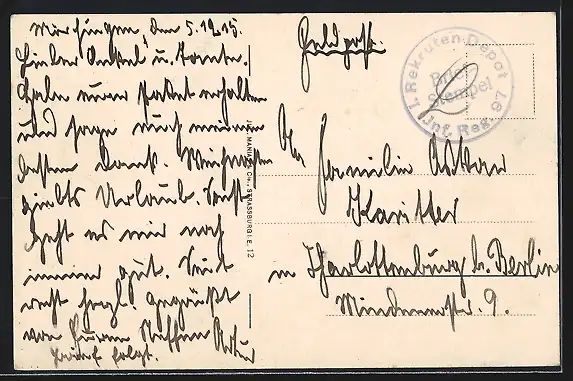 Mörchingen, den 5.12.15.
Lieber Onkel u. Tante.
Habe euer Paket erhalten
und sage euch meinen
besten Dank. Weihnachten
giebts Urlaub. Sonst
geht es mir noch
immer gut. Seid
recht herzl. gegrüßt
von Eurem Neffen Artur
Brief folgt.
Feldpost.
I. Rekruten-Depot
Brief-
stempel
Inf. Reg. 97
An
Familie Oskar
in Charlottenburg b. Berlin
Mindenerstr. 9.
STRASSBURG I. E. 12